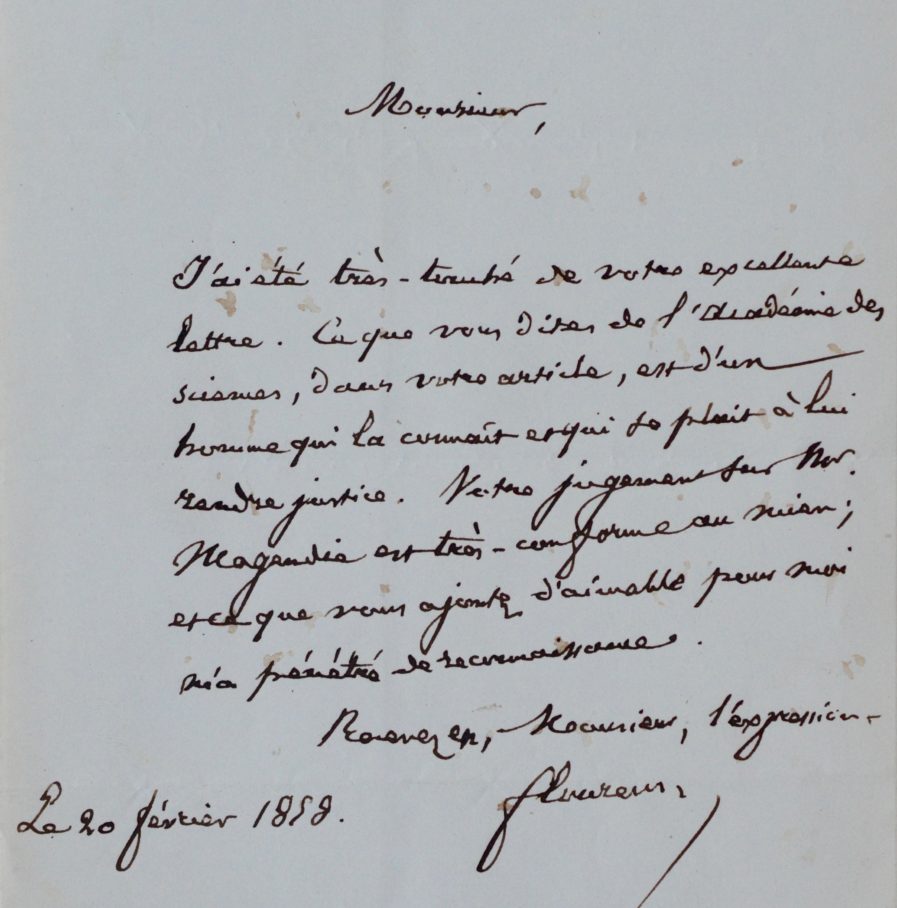 Monsieur,
J'ai été très-touché de votre excellente
lettre. Ce que vous dites de l'Académie des
sciences, dans votre article, est d'un
homme qui la connaît et qui se plait à lui
rendre justice. Votre jugement sur Mr.
Magendie est très-conforme au mien;
et ce que vous ajoutez d'aimable pour moi
m'a pénétré de reconnaissance.
Recevez en, Monsieur, l'expression.
flourens.
Le 20 février 1858.